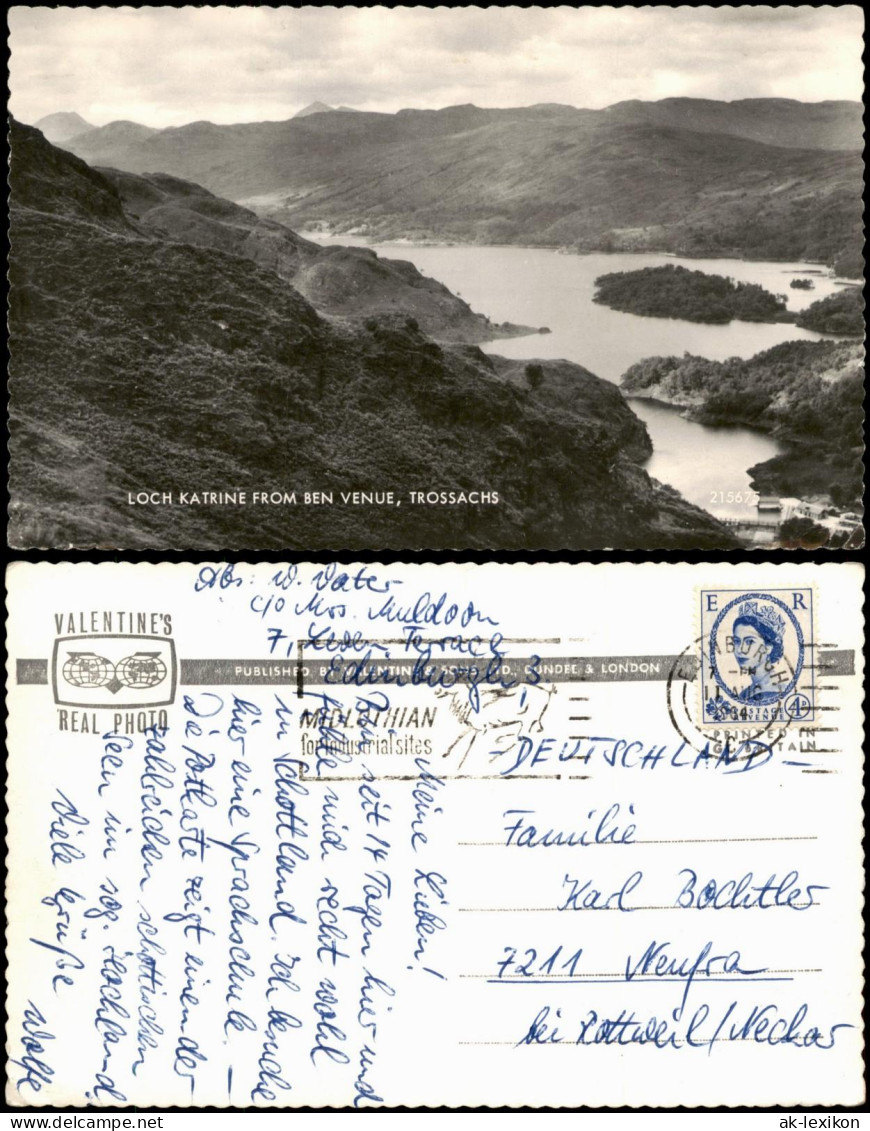 LOCH KATRINE FROM BEN VENUE, TROSSACHS
215675
Abs: W. Vater
c/o Mrs. Muldoon
7, Leven Terrace
Edinburgh 3
VALENTINE'S
REAL PHOTO
PUBLISHED BY VALENTINE & SONS LTD, DUNDEE & LONDON
MIDLOTHIAN
for industrial sites
EDINBURGH
7 - PM
11 AUG
1964
E R
4D
POSTAGE
REVENUE
PRINTED IN
GT. BRITAIN
Meine Lieben!
Bin seit 14 Tagen hier und
fühle mich recht wohl
in Schottland. Ich besuche
hier eine Sprachschule. –
Die Postkarte zeigt einen der
zahlreichen schottischen
Seen im sog. Hochland.
Viele Grüße
Wolfe
DEUTSCHLAND –
Familie
Karl Bochtler
7211 Neufra
bei Rottweil/Neckar
ak-lexikon
delcampe.net